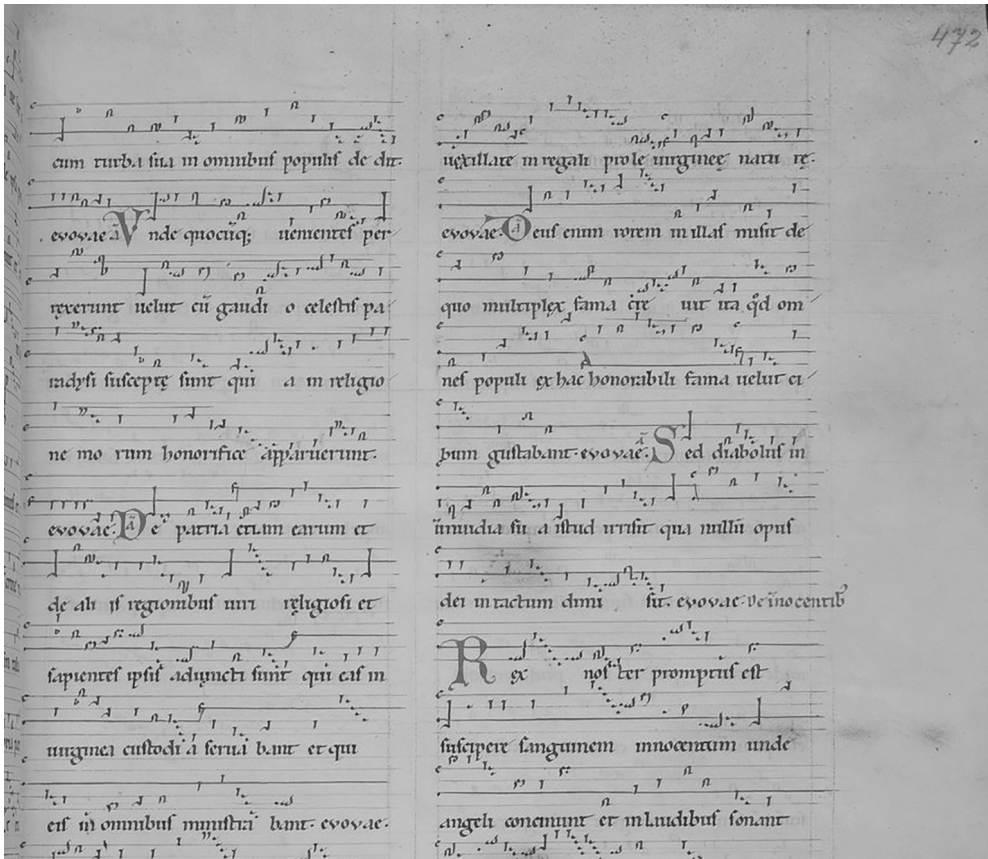 472
cum turba sua in omnibus populis de dit.
evovae ā Vnde quocūq; uenientes per
rexerunt uelut cū gaudi o celestis pa
radysi suscepte sunt qui a in religio
ne mo rum honorifice apparuerunt.
evovae. ā De patria etiam earum et
de ali is regionibus uiri religiosi et
sapientes ipsis adiuncti sunt qui eas in
uirginea custodi a serua bant et qui
eis in omnibus ministra bant. evovae.
uexillate in regali prole uirginee natu re.
evovae. ā Deus enim rorem in illas misit de
quo multiplex fama cre uit ita qd om
nes populi ex hac honorabili fama uelut ci
bum gustabant. evovae. ā Sed diabolus in
inuidia su a istud irrisit qua nullū opus
dei intactum dimi sit. evovae. De inocentib
Rex nos ter promptus est
suscipere sanguinem innocentum unde
angeli concinunt et in laudibus sonant